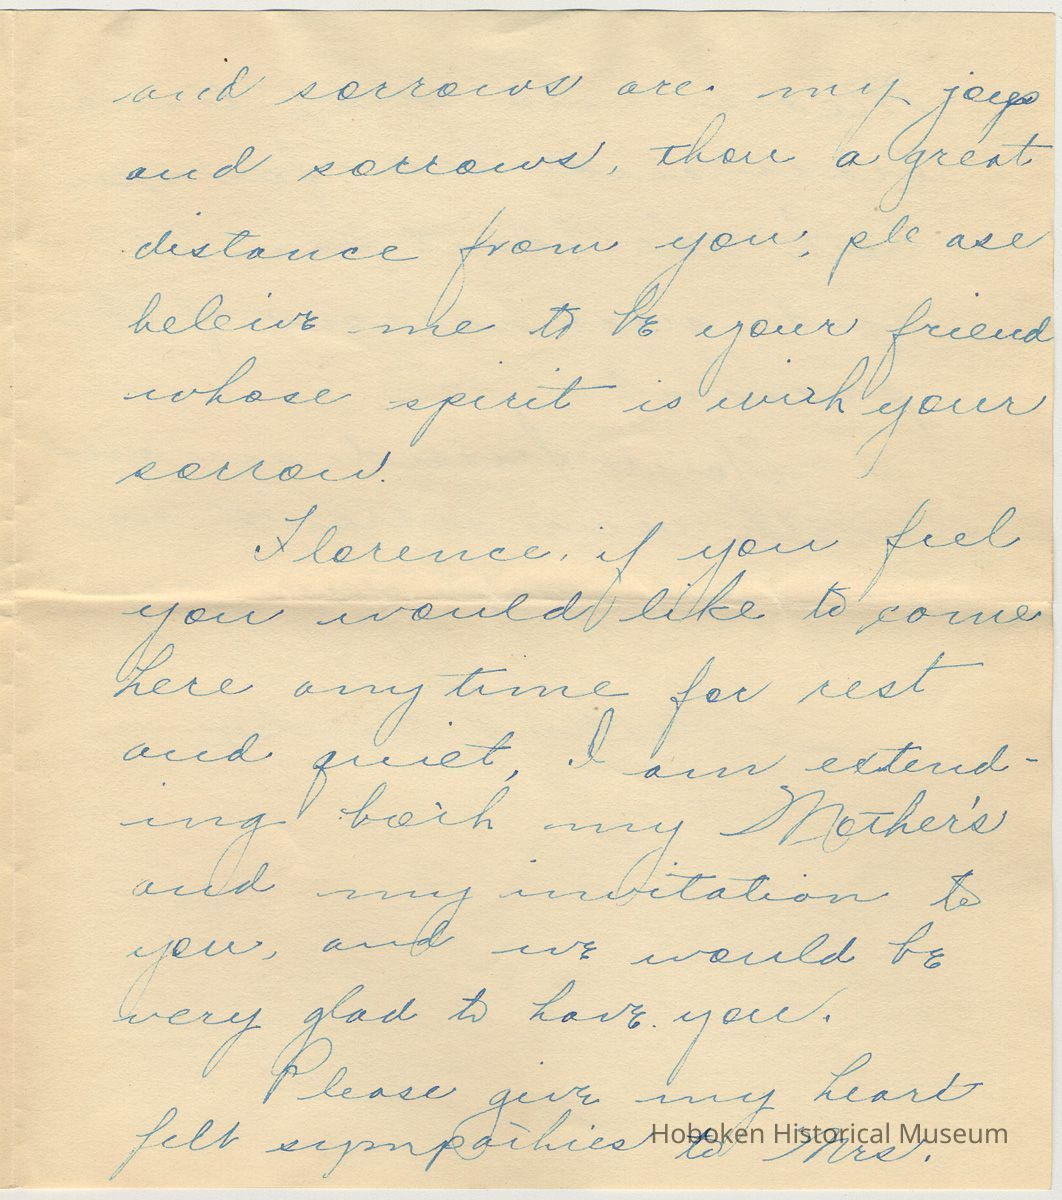 and sorrows are my joys
and sorrows, thou a great
distance from you, please
beleive me to be your friend
whose spirit is with your
sorrow.
Florence, if you feel
you would like to come
here anytime for rest
and quiet, I am extend-
ing both my Mother's
and my invitation to
you, and we would be
very glad to have you.
Please give my heart
felt sympathies to Mrs.
Hoboken Historical Museum